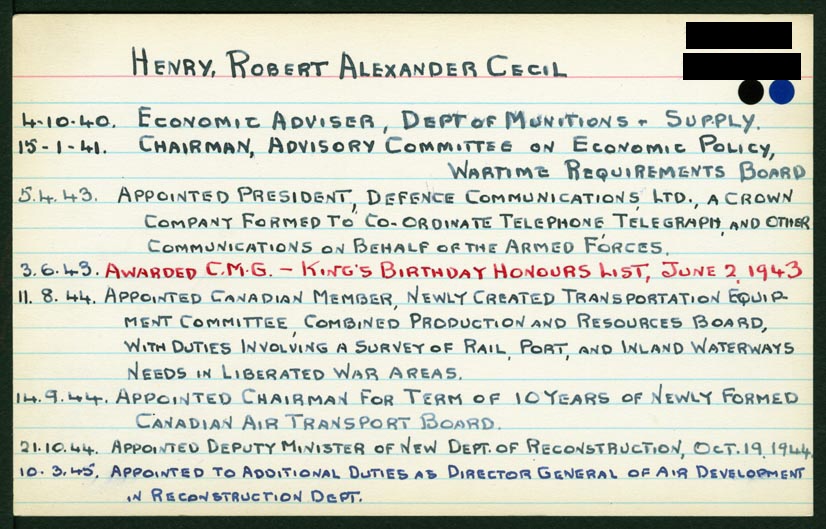 HENRY, ROBERT ALEXANDER CECIL
4-10-40. ECONOMIC ADVISER, DEPT OF MUNITIONS & SUPPLY.
15-1-41. CHAIRMAN, ADVISORY COMMITTEE ON ECONOMIC POLICY,
WARTIME REQUIREMENTS BOARD
5.4.43. APPOINTED PRESIDENT, DEFENCE COMMUNICATIONS, LTD., A CROWN
COMPANY FORMED TO CO-ORDINATE TELEPHONE, TELEGRAPH, AND OTHER
COMMUNICATIONS ON BEHALF OF THE ARMED FORCES.
3.6.43. AWARDED C.M.G. - KING'S BIRTHDAY HONOURS LIST, JUNE 2, 1943
11.8.44. APPOINTED CANADIAN MEMBER, NEWLY CREATED TRANSPORTATION EQUIP-
MENT COMMITTEE, COMBINED PRODUCTION AND RESOURCES BOARD,
WITH DUTIES INVOLVING A SURVEY OF RAIL, PORT, AND INLAND WATERWAYS
NEEDS IN LIBERATED WAR AREAS.
14.9.44. APPOINTED CHAIRMAN FOR TERM OF 10 YEARS OF NEWLY FORMED
CANADIAN AIR TRANSPORT BOARD.
21.10.44. APPOINTED DEPUTY MINISTER OF NEW DEPT. OF RECONSTRUCTION, OCT. 19, 1944.
10.3.45. APPOINTED TO ADDITIONAL DUTIES AS DIRECTOR GENERAL OF AIR DEVELOPMENT
IN RECONSTRUCTION DEPT.